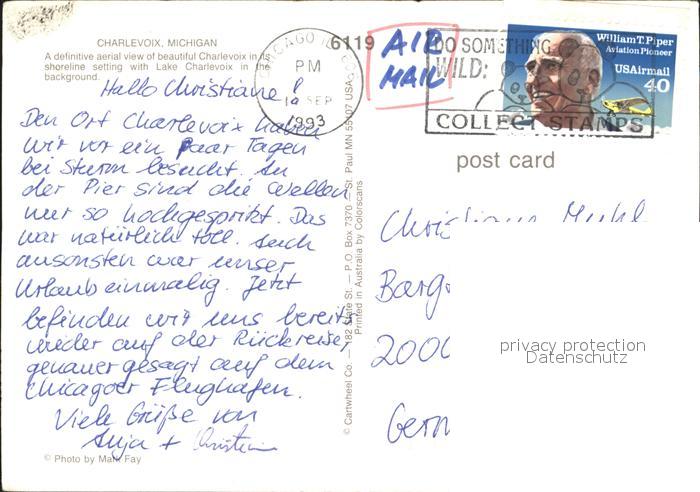 CHARLEVOIX, MICHIGAN
A definitive aerial view of beautiful Charlevoix in its
shoreline setting with Lake Charlevoix in the
background.
Hallo Christiane!
Den Ort Charlevoix haben
wir vor ein paar Tagen
bei Sturm besucht. An
der Pier sind die Wellen
nur so hochgespritzt. Das
war natürlich toll. Auch
ansonsten war unser
Urlaub einmalig. Jetzt
befinden wir uns bereits
wieder auf der Rückreise,
genauer gesagt auf dem
Chicagoer Flughafen.
Viele Grüße von
Anja + Christian
© Photo by Mark Fay
© Cartwheel Co. — 182 State St. — P.O. Box 7370 — St. Paul MN 55107 USA
Printed in Australia by Colorscans
CHICAGO IL
6119
PM
14 SEP
1993
AIR
MAIL
DO SOMETHING
WILD:
COLLECT STAMPS
William T. Piper
Aviation Pioneer
USAirmail
40
post card
Christiane
Barg
2000
Germ
privacy protection
Datenschutz